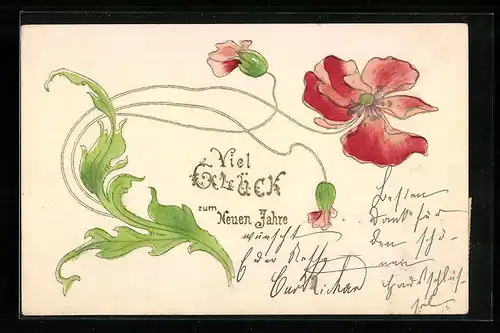 Viel
Glück
zum
Neuen Jahre
wünscht
Euer Neffe
Besten
Dank für
den schö-
nen